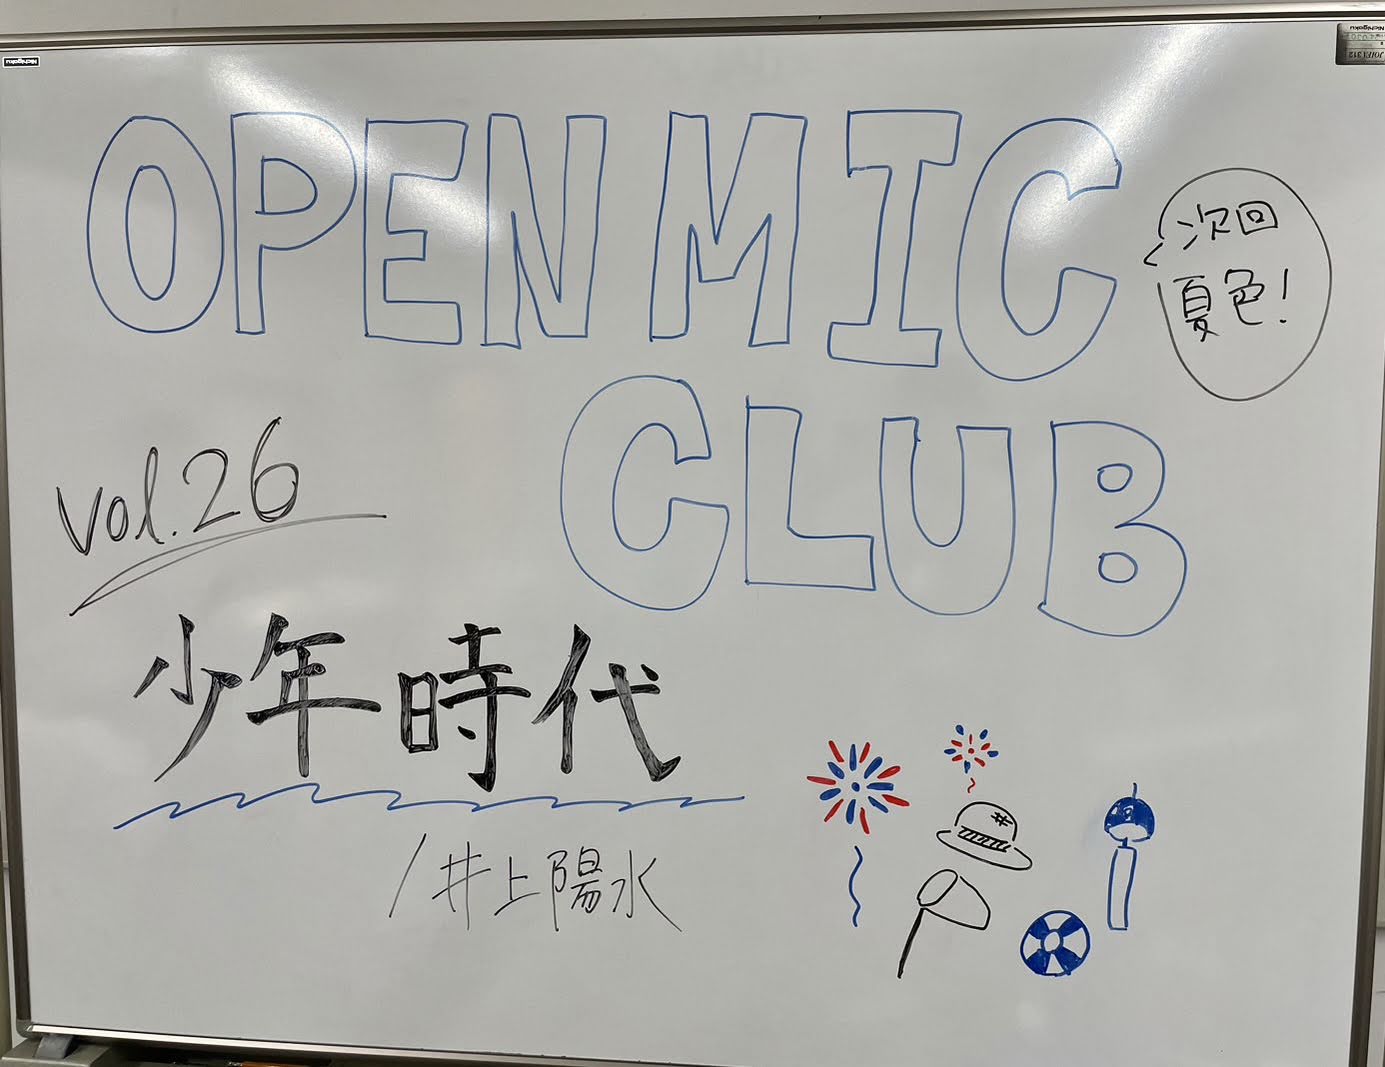 Nichigaku
OPEN MIC
CLUB
次回
夏色!
vol.26
少年時代
/井上陽水